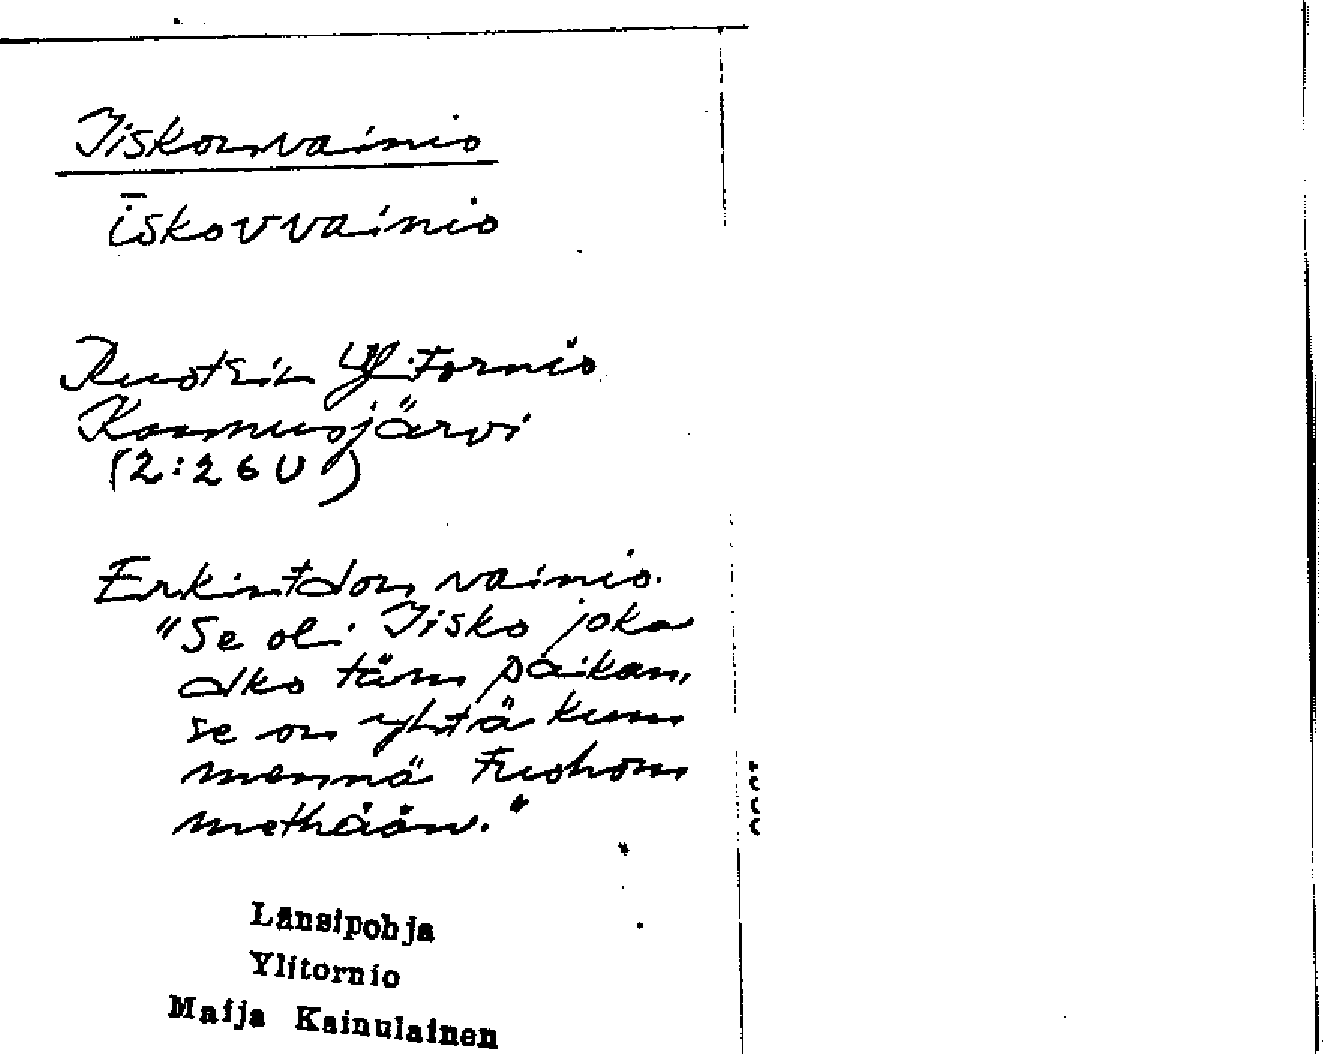 Iiskonvainio
īskovvainio
Ruotsin Ylitornio
Kaarnusjärvi
(2:26 U)
Erkintalon vainio.
"Se oli Iisko joka
alko tämn paikan,
se on yhtä kunn
mennä Fruohonn
methään."
Länsipohja
Ylitornio
Maija Kainulainen